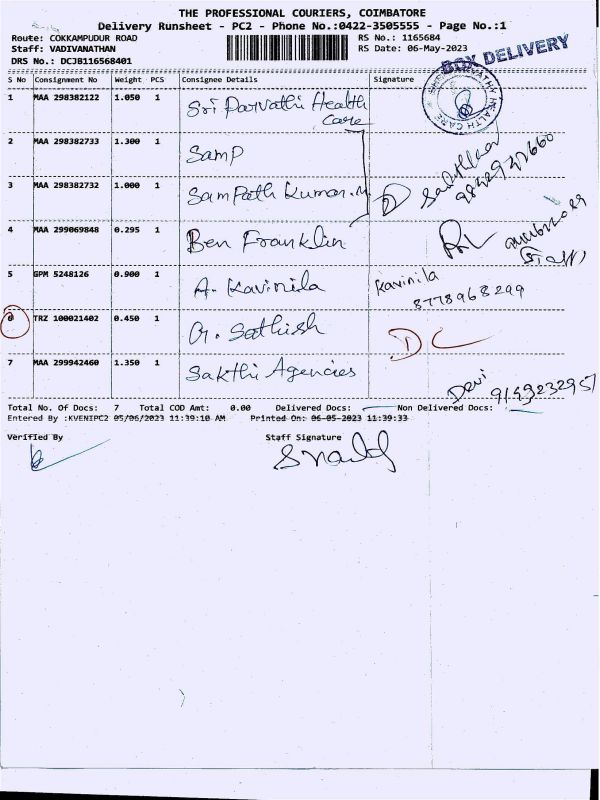 THE PROFESSIONAL COURIERS, COIMBATORE
Delivery Runsheet - PC2 - Phone No.:0422-3505555 - Page No.:1
Route: COKKAMPUDUR ROAD RS No.: 1165684
Staff: VADIVANATHAN RS Date: 06-May-2023
DRS No.: DCJB116568401
BOX DELIVERY
S No Consignment No Weight PCS Consignee Details Signature
1 MAA 298382122 1.050 1 Sri Parvathi Health Care
SRI PARVATHY HEALTH CARE
2 MAA 298382733 1.300 1 Samp
3 MAA 298382732 1.000 1 Sampath Kumar.M
4 MAA 299069848 0.295 1 Ben Franklin
5 GPM 5248126 0.900 1 A. Kavinila Kavinila
8778968299
6 TRZ 100021402 0.450 1 G. Sathish DC
7 MAA 299942460 1.350 1 Sakthi Agencies Devi
9149232957
Total No. Of Docs: 7 Total COD Amt: 0.00 Delivered Docs: Non Delivered Docs:
Entered By :KVENIPC2 05/06/2023 11:39:10 AM Printed On: 06-05-2023 11:39:33
Verified By Staff Signature